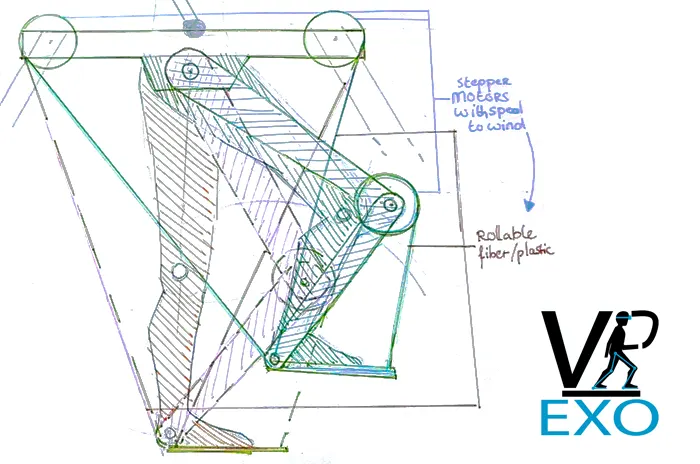 stepper
MOTORS
with spool
to wind
Rollable
fiber/plastic
VR
EXO